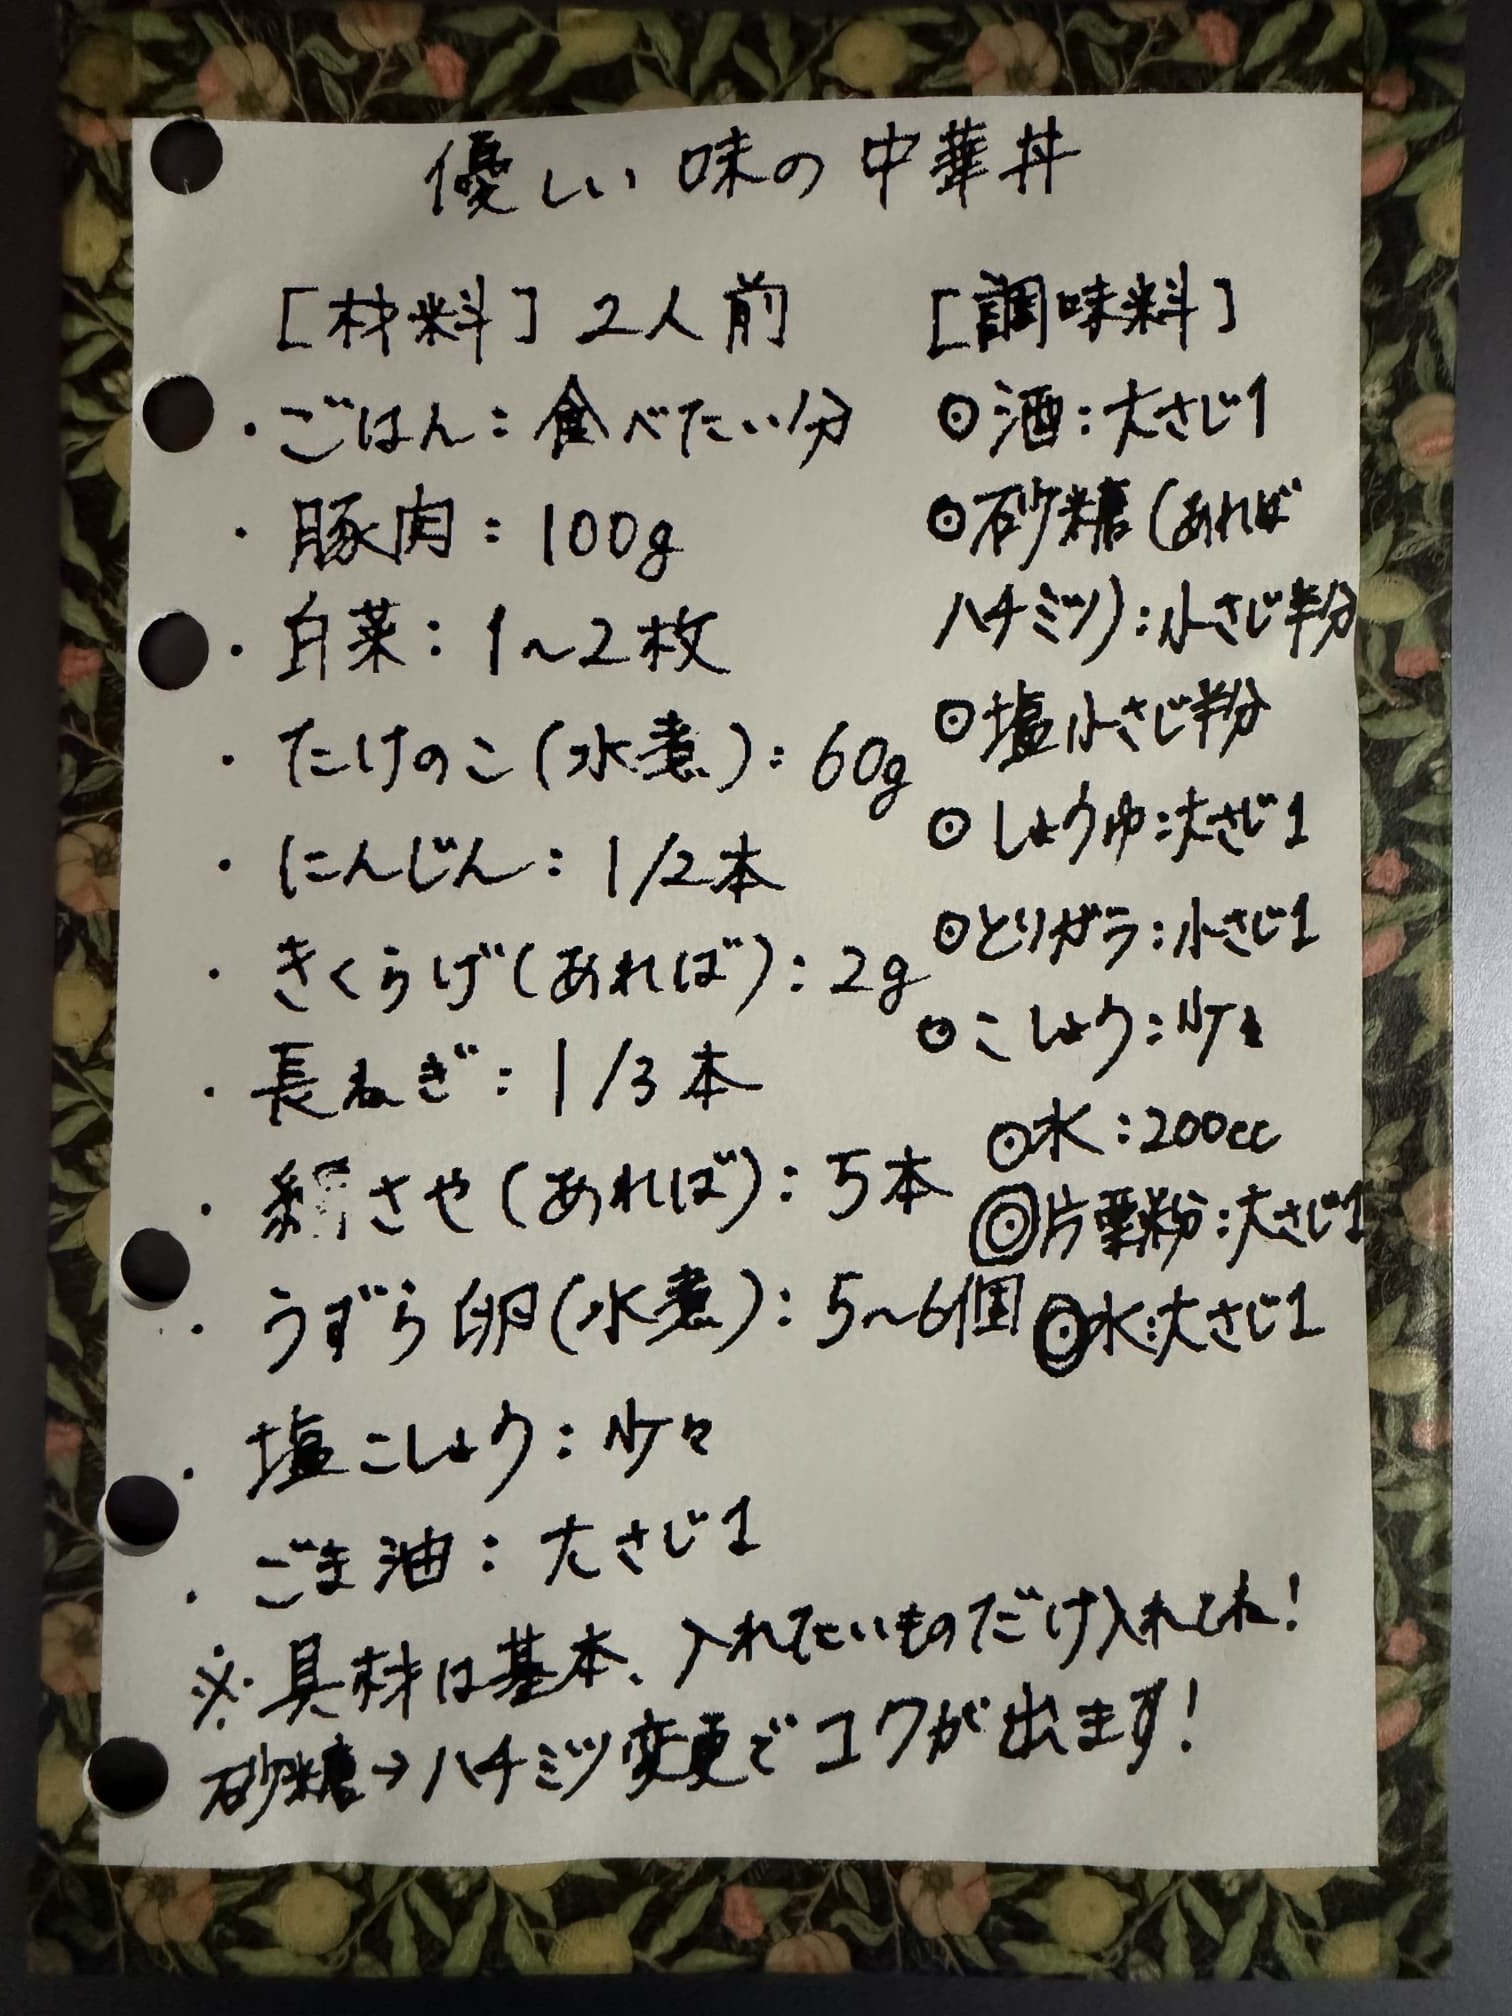 優しい味の中華丼
[材料] 2人前
・ごはん：食べたい分
・豚肉：100g
・白菜：1〜2枚
・たけのこ(水煮)：60g
・にんじん：1/2本
・きくらげ(あれば)：2g
・長ねぎ：1/3本
・絹さや(あれば)：5本
・うずら卵(水煮)：5〜6個
・塩こしょう：少々
・ごま油：大さじ1
[調味料]
⊙酒：大さじ1
⊙砂糖(あれば
ハチミツ)：小さじ半分
⊙塩小さじ半分
⊙しょうゆ：大さじ1
⊙とりガラ：小さじ1
⊙こしょう：少々
⊙水：200cc
◎片栗粉：大さじ1
◎水：大さじ1
※具材は基本、入れたいものだけ入れてね！
砂糖→ハチミツ変更でコクが出ます！